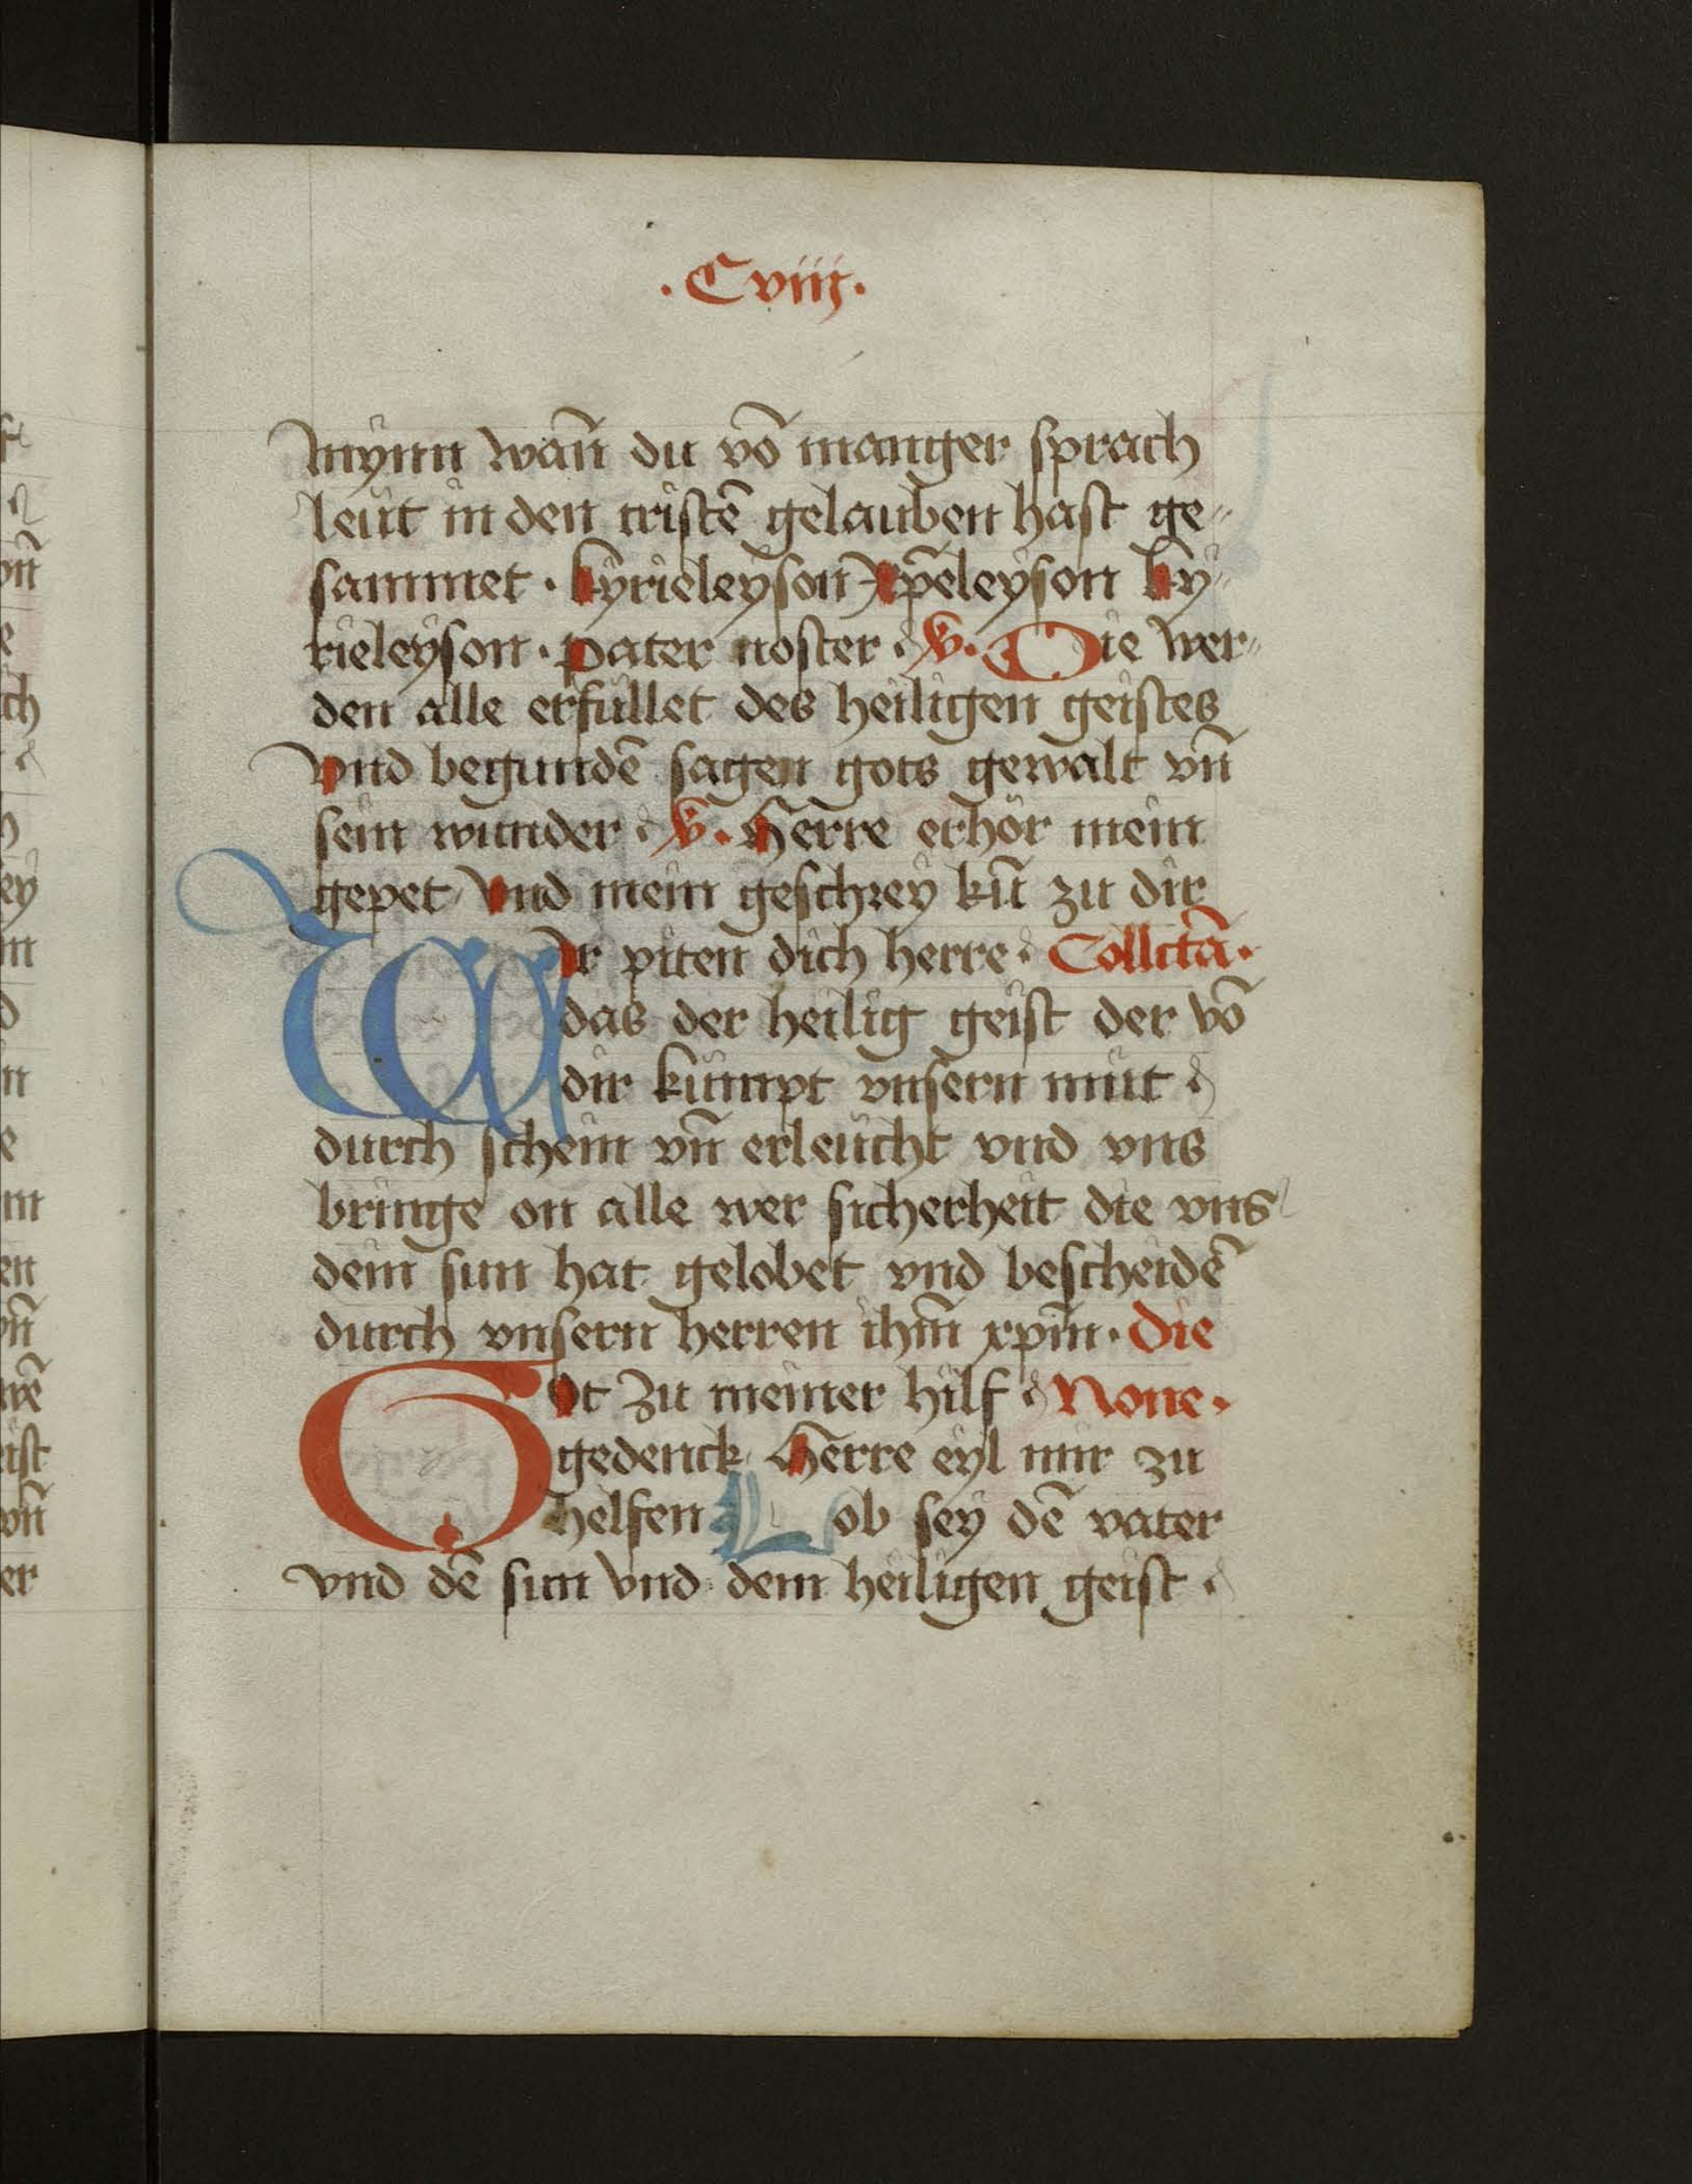 .Cviij.
mynn wan̄ du vō manger sprach
leüt in den cristē gelauben hast ge-
sammet · kyrieleyson xp̄eleyson ky-
rieleyson · pater noster · V. Die wer-
den alle erfüllet des heiligen geistes
vnd begundē sagen gots gewalt vn̄
sein wunder · V. Herre erhör mein
gepet vnd mein geschrey kū zu dir
WIr piten dich herre · Collctā·
das der heilig geist der vō
dir kümpt vnsern müt
durch schein vn̄ erleücht vnd vns
bringe on alle wer sicherheit die vns
dein sun hat gelobet vnd bescheidē
durch vnsern herren ihm̄ xpm̄ · Die
Got zu meiner hilf None·
gedenck Herre eyl mir zu
helfen Lob sey dē vater
vnd dē sun vnd dem heiligen geist ·